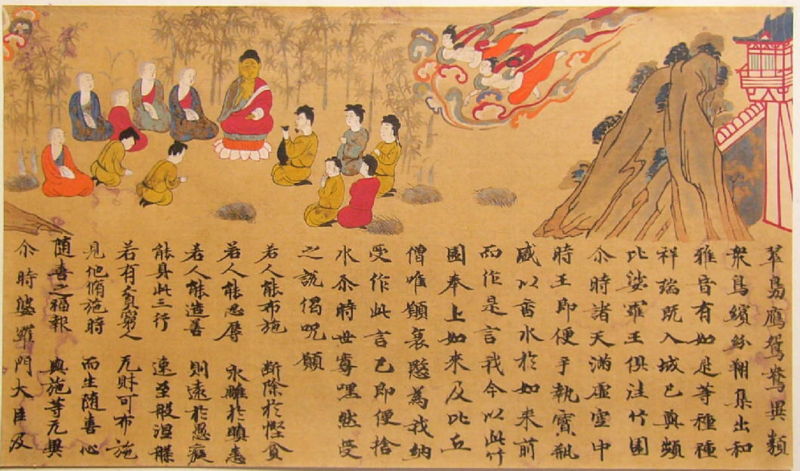 翠鳬鴈鴛鴦異類
衆鳥繽紛翔集出和
雅音有如是等種種
祥瑞既入城已與頻
比娑羅王俱往竹園
尒時諸天滿虛空中
時王即便手執寶瓶
盛以香水於如來前
而作是言我今以此竹
園奉上如來及比丘
僧唯願哀愍為我納
受作此言已即便捨
水尒時世尊嘿然受
之說偈呪願
若人能布施 断除於慳貪
若人能忍辱 永離於瞋恚
若人能造善 則遠於愚癡
能具此三行 速至般涅槃
若有貧窮人 无財可布施
見他脩施時 而生随喜心
随喜之福報 與施等无異
尒時婆羅門大臣及